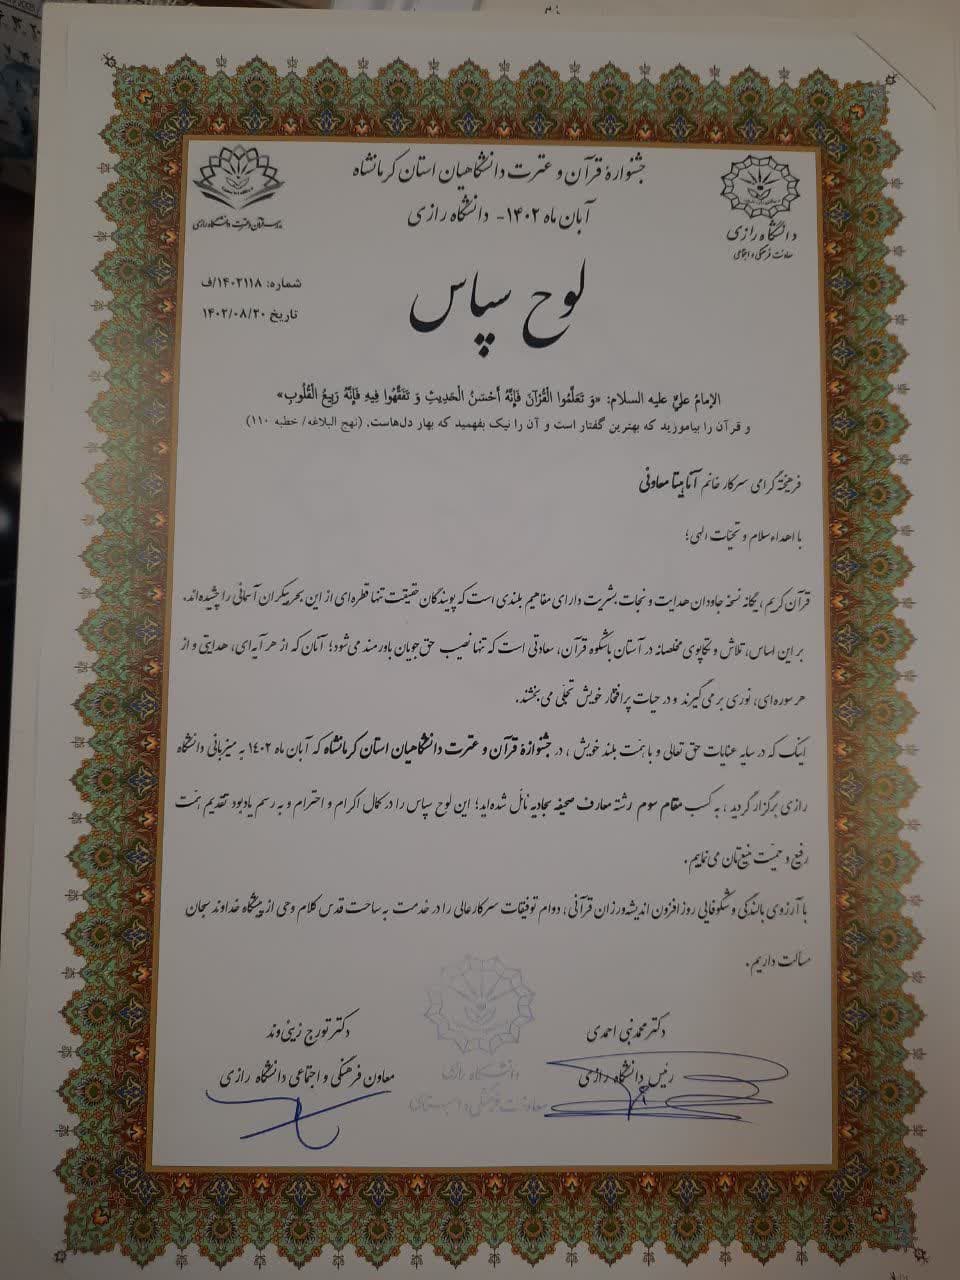 جشنوارهٔ قرآن و عترت دانشگاهیان استان کرمانشاه
آبان ماه ۱۴۰۲- دانشگاه رازی
دانشگاه رازی
معاونت فرهنگی و اجتماعی
مدرسه قرآن و عترت دانشگاه رازی
شماره: ۱۴۰۲۱۱۸/ف
تاریخ ۱۴۰۲/۰۸/۲۰
لوح سپاس
الإمامُ عليٌّ علیه السلام: «وَ تَعَلَّمُوا الْقُرْآنَ فَإِنَّهُ أَحْسَنُ الْحَدِيثِ وَ تَفَقَّهُوا فِيهِ فَإِنَّهُ رَبِيعُ الْقُلُوبِ»
و قرآن را بیاموزید که بهترین گفتار است و آن را نیک بفهمید که بهار دل‌هاست. (نهج البلاغه/ خطبه ۱۱۰)
فرهیختهٔ گرامی سرکار خانم آناهیتا معاونی
با اهداء سلام و تحیّات الهی؛
قرآن کریم، یگانه نسخه جاودان هدایت و نجات بشریت دارای مفاهیم بلندی است که پویندگان حقیقت تنها قطره‌ای از این بحر بیکران آسمانی را چشیده‌اند.
بر این اساس، تلاش و تکاپوی مخلصانه در آستان باشکوه قرآن، سعادتی است که تنها نصیب حق‌جویان باورمند می‌شود؛ آنان که از هر آیه‌ای، هدایتی و از
هر سوره‌ای، نوری بر می‌گیرند و در حیات پرافتخار خویش تجلّی می‌بخشند.
اینک که در سایه عنایات حق تعالی و با همّت بلند خویش، در جشنوارهٔ قرآن و عترت دانشگاهیان استان کرمانشاه که آبان ماه ۱۴۰۲ به میزبانی دانشگاه
رازی برگزار گردید، به کسب مقام سوم رشته معارف صحیفه سجادیه نائل شده‌اید؛ این لوح سپاس را در کمال اکرام و احترام و به رسم یادبود تقدیم همّت
رفیع و حمیّت منیع‌تان می‌نماییم.
با آرزوی بالندگی و شکوفایی روزافزون اندیشه‌ورزان قرآنی، دوام توفیقات سرکارعالی را در خدمت به ساحت قدس کلام وحی از پیشگاه خداوند سبحان
مسالت داریم.
دکتر محمدنبی احمدی
رئیس دانشگاه رازی
دکتر تورج زینی‌وند
معاون فرهنگی و اجتماعی دانشگاه رازی
دانشگاه رازی
معاونت فرهنگی و اجتماعی